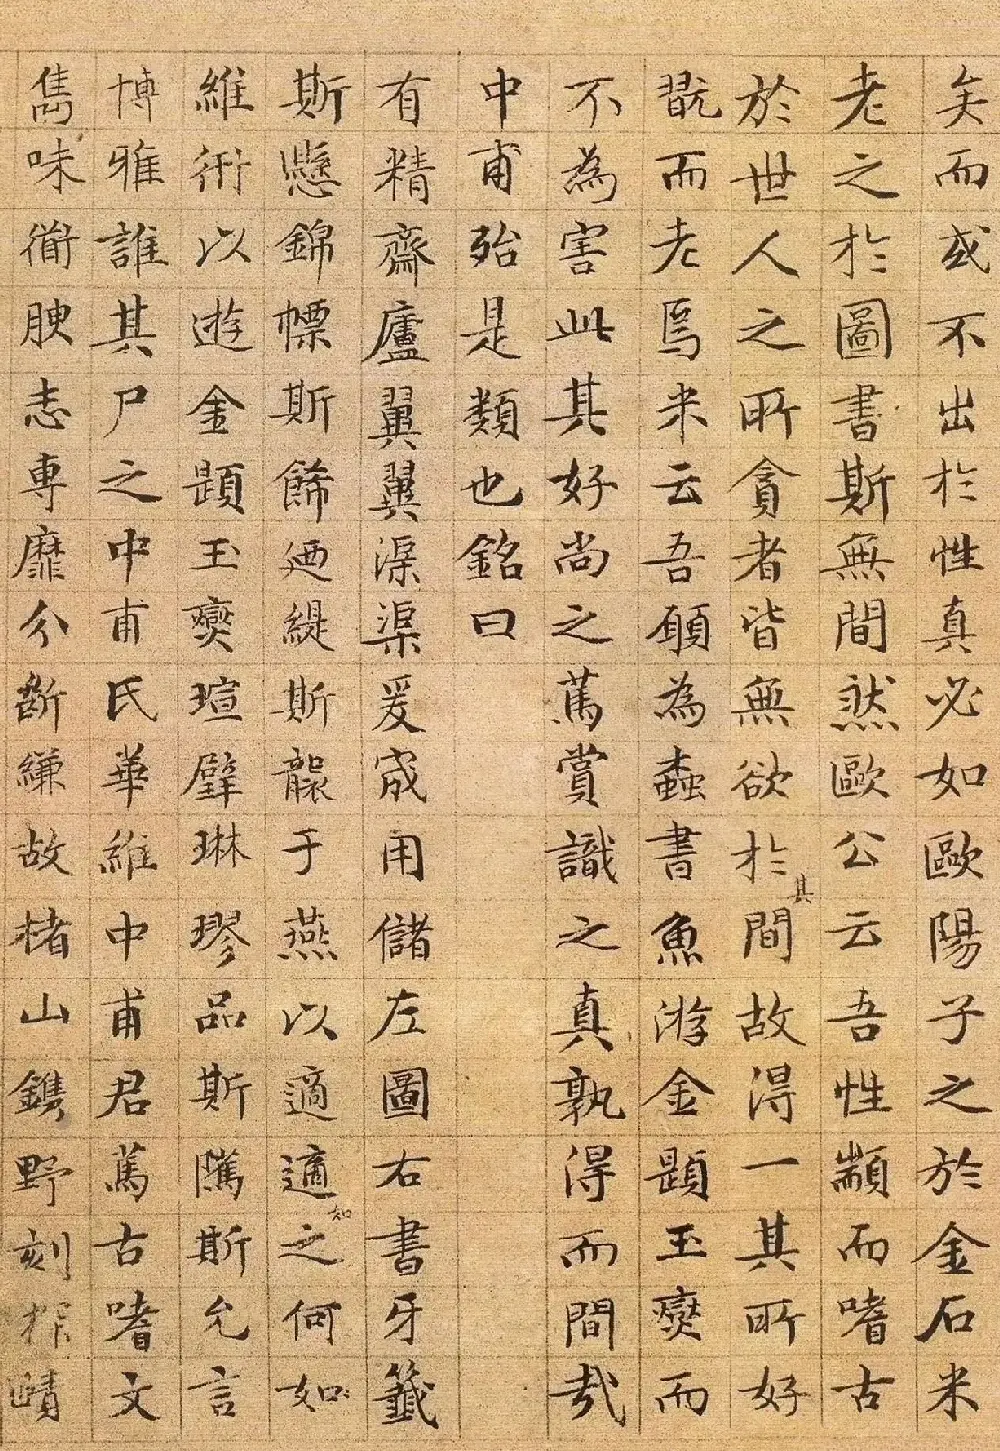 矣而或不出於性真必如歐陽子之於金石米
老之於圖書斯無間然歐公云吾性顓而嗜古
於世人之所貪者皆無欲於其間故得一其所好
翫而老焉米云吾願為蠹書魚游金題玉躞而
不為害此其好尚之篤賞識之真孰得而間哉
中甫殆是類也銘曰
有精齋廬翼翼渠渠爰宬用儲左圖右書牙籤
斯懸錦幖斯飾迺緹斯襲于燕以適適之如何如
維術以遊金題玉躞瑄璧琳璆品斯隲斯允言
博雅誰其尸之中甫氏華維中甫君篤古嗜文
雋味衜腴志專靡分斷縑故楮山鐫野刻